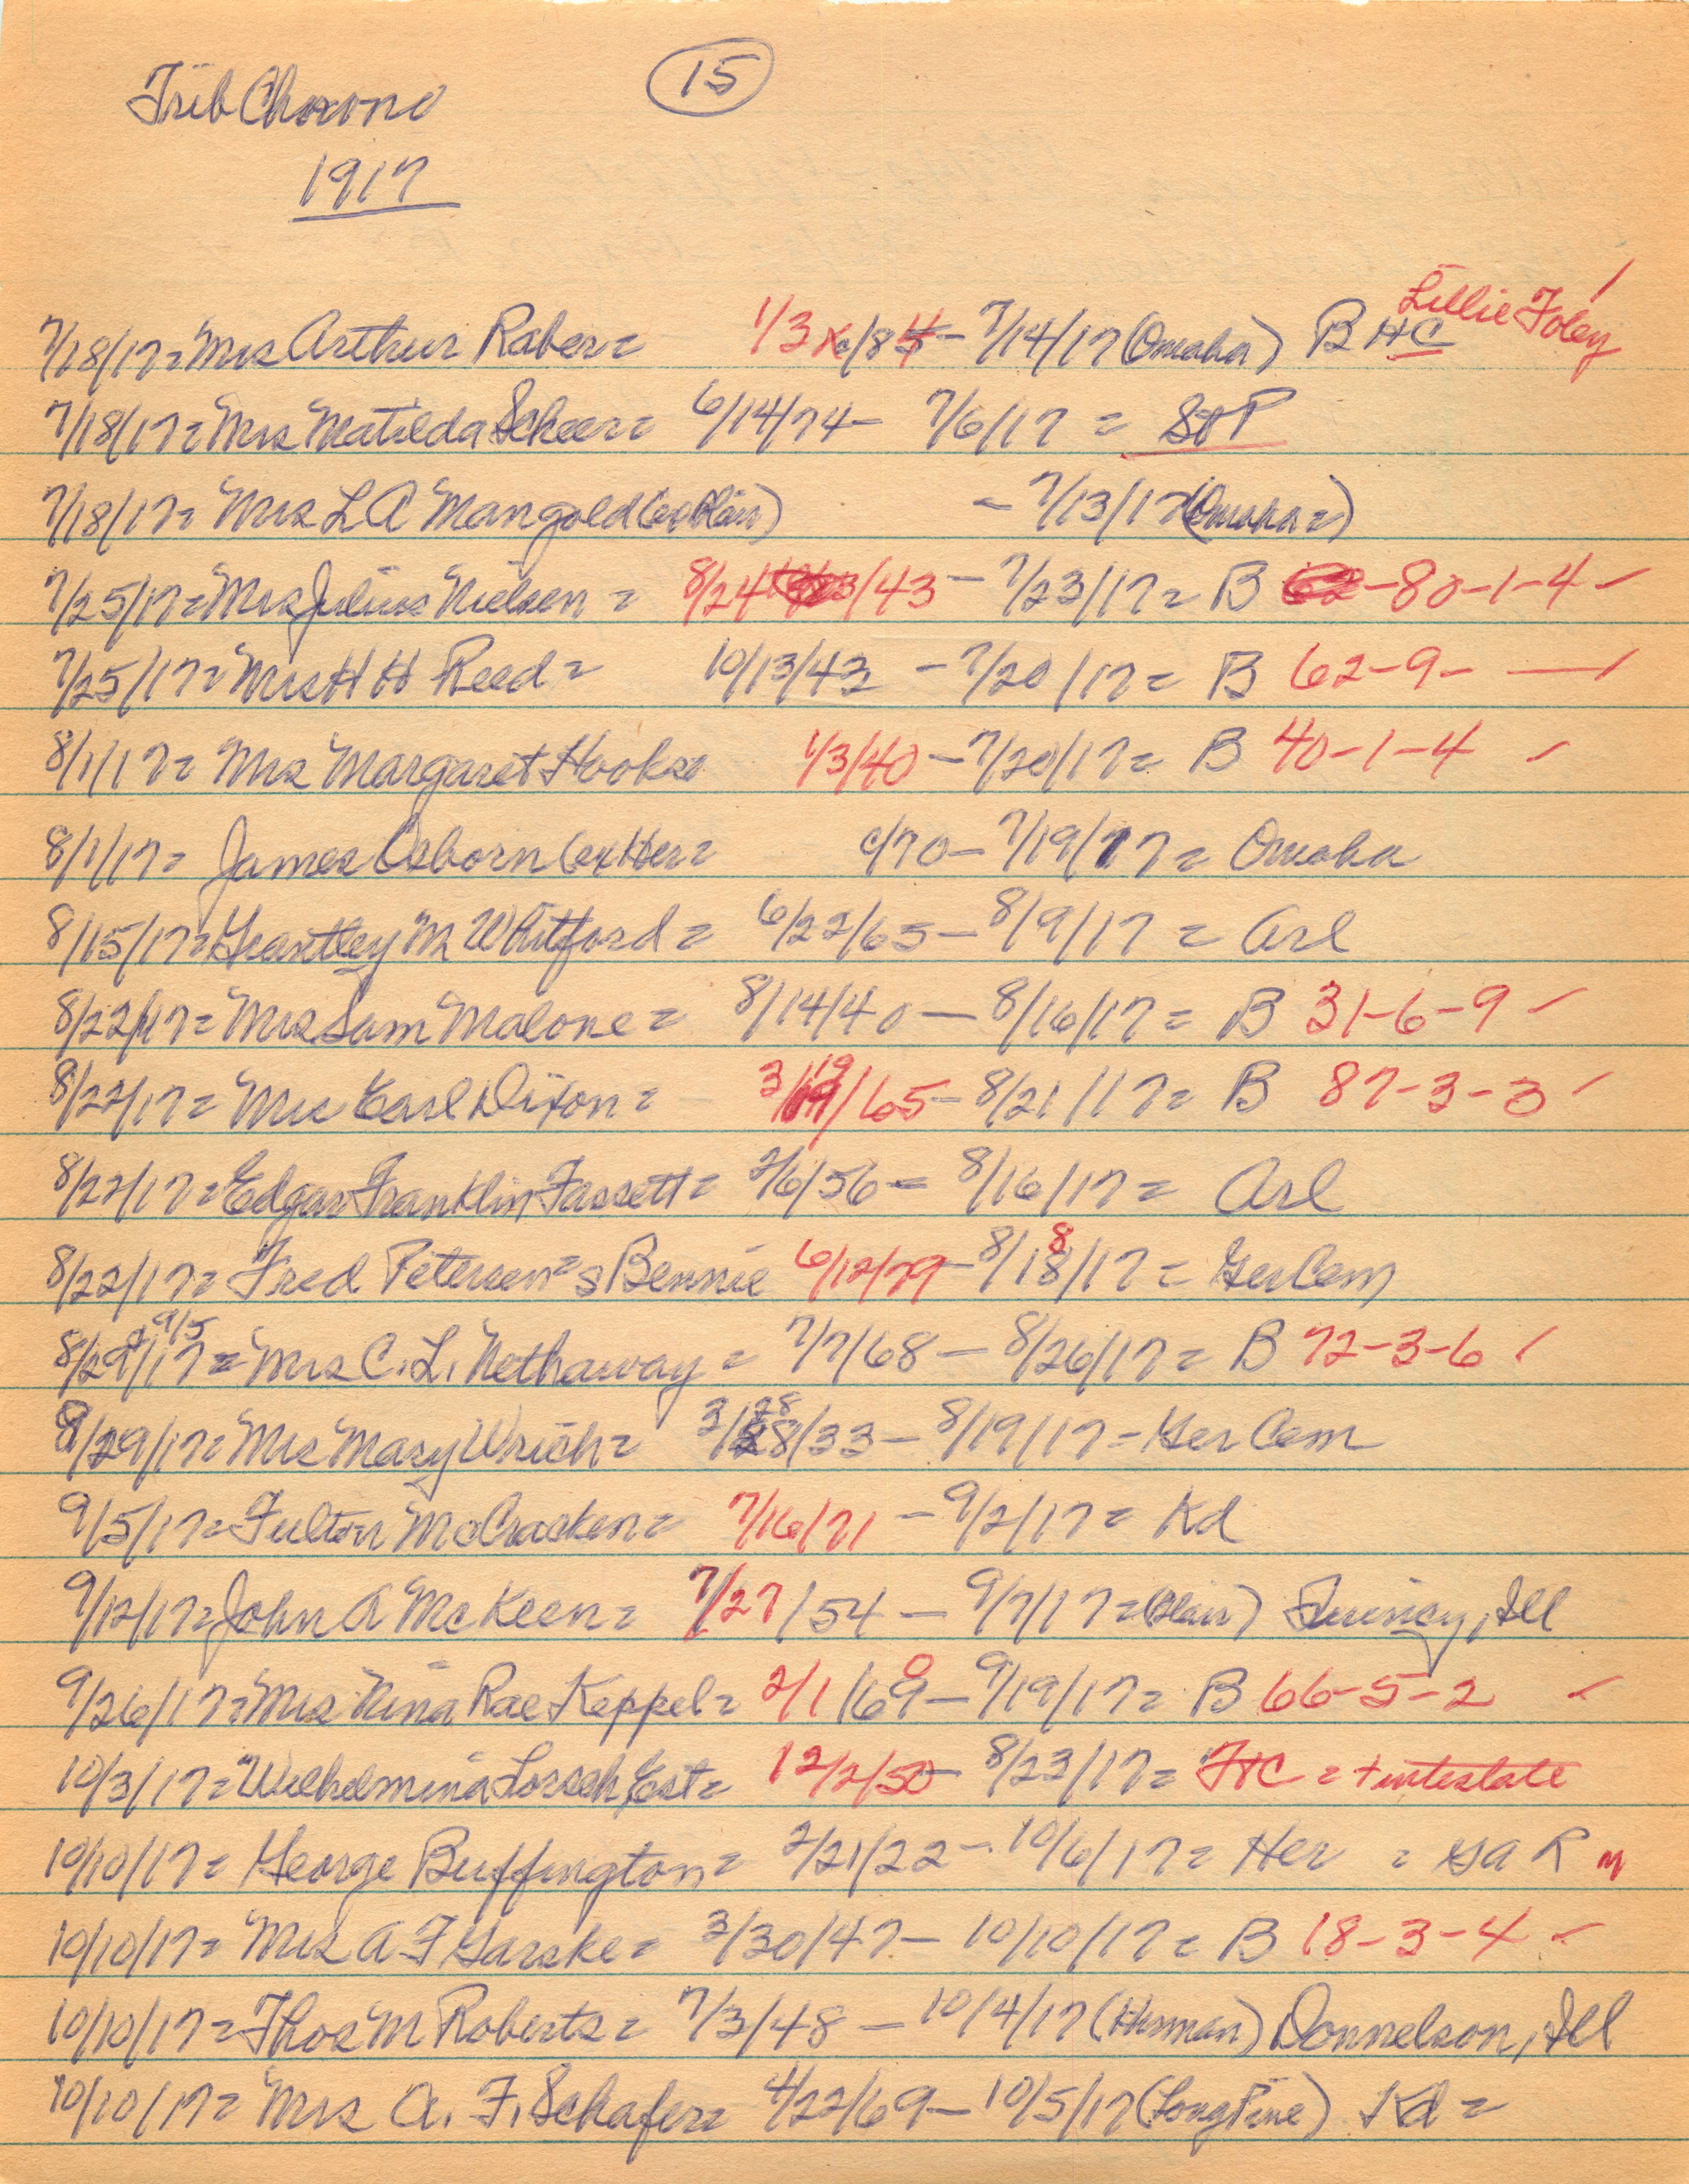 Trib Chrono 15
1917
Lillie Foley
7/18/17= Mrs Arthur Raber= 1/3 /84 - 7/14/17 (Omaha) B HC
7/18/17= Mrs Matilda Scheer= 6/14/74- 7/6/17 = StP
7/18/17= Mrs L A Mangold (ex Blair) - 7/13/17 (Omaha=)
7/25/17= Mrs Julius Nielsen = 8/24/43 - 7/23/17= B -80-1-4 -
7/25/17= Mrs H H Reed= 10/13/43 - 7/20/17= B 62-9- —
8/1/17= Mrs Margaret Hooks= 1/3/40 - 7/20/17= B 40-1-4
8/1/17= James Osborn (ex Her= c/70- 7/19/17= Omaha
8/15/17= Grantley M Whitford= 6/22/65- 8/9/17 = Arl
8/22/17= Mrs Sam Malone= 8/14/40 - 8/16/17= B 31-6-9
8/22/17= Mrs Earl Dixon= 3/19/65- 8/21/17= B 87-3-3
8/22/17= Edgar Franklin Fassett= 2/6/56- 8/16/17= Arl
8/22/17= Fred Petersen= s Bennie 6/12/79- 8/18/17= Ger Cem
9/5
8/29/17= Mrs C. L. Nethaway= 7/7/68- 8/26/17= B 72-3-6
8/29/17= Mrs Mary Wrich= 3/28/33- 8/19/17- Ger Cem
9/5/17= Fulton McCracken= 7/16/71 - 9/2/17= Kd
9/12/17= John A McKeen= 7/27/54 - 9/7/17= (Blair) Quincy, Ill
9/26/17= Mrs Nina Rae Keppel= 2/1/69- 9/19/17= B 66-5-2
10/3/17= Wilhelmina Lorsch, Est= 12/2/50- 8/23/17= FtC = + intestate
10/10/17= George Buffington= 2/21/22- 10/6/17= Her = GAR
10/10/17= Mrs A F Garske= 3/30/47- 10/10/17= B 18-3-4 -
10/10/17= Thos M Roberts= 7/3/48 - 10/4/17 (Herman) Donnelson, Ill
10/10/17= Mrs A. F. Schafer= 4/22/69- 10/5/17 (Long Pine) Kd=